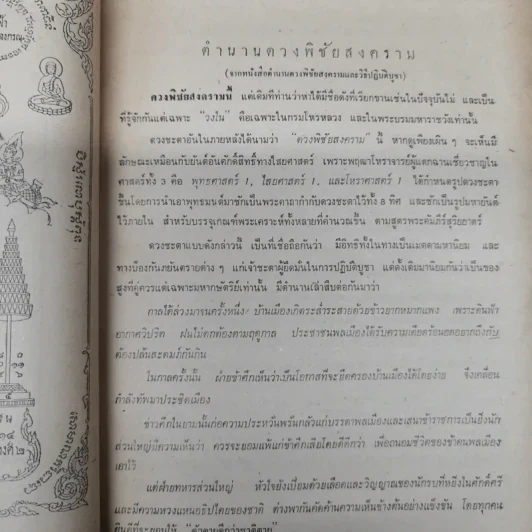 ตำนานดวงพิชัยสงคราม
(จากหนังสือตำนานดวงพิชัยสงครามและวิธีปฏิบัติบูชา)
ดวงพิชัยสงครามนี้ แต่เดิมทีท่านว่าหาได้มีชื่อดังที่เรียกขานเช่นในปัจจุบันไม่ และเป็น
ที่รู้จักกันแต่เฉพาะ "วงใน" คือเฉพาะในกรมโหรหลวง และในพระบรมมหาราชวังเท่านั้น
ดวงชะตาอันในภายหลังได้นามว่า "ดวงพิชัยสงคราม" นี้ หากดูเพียงเผิน ๆ จะเห็นมี
ลักษณะเหมือนกับยันต์อันศักดิ์สิทธิ์ทางไสยศาสตร์ เพราะพฤฒาโหราจารย์ผู้แตกฉานเชี่ยวชาญใน
ศาสตร์ทั้ง 3 คือ พุทธศาสตร์ 1, ไสยศาสตร์ 1, และโหราศาสตร์ 1 ได้กำหนดรูปดวงชะตา
ขึ้นโดยการนำเอาพุทธมนต์มาชักเป็นพระคาถากำกับดวงชะตาไว้ทั้ง 8 ทิศ และชักเป็นรูปมหายันต์
ไว้ภายใน สำหรับบรรจุเกณฑ์พระเคราะห์ทั้งหลายที่คำนวณขึ้น ตามสูตรพระคัมภีร์สุริยยาตร์
ดวงชะตาแบบดังกล่าวนี้ เป็นที่เชื่อถือกันว่า มีอิทธิทั้งในทางเป็นเมตตามหานิยม และ
ทางป้องกันภยันตรายต่าง ๆ แก่เจ้าชะตาผู้ยึดมั่นในการปฏิบัติบูชา แต่ดั้งเดิมมานิยมกันว่าเป็นของ
สูงที่คู่ควรแต่เฉพาะมหากษัตริย์เท่านั้น มีตำนานเล่าสืบต่อกันมาว่า
กาลได้ล่วงมานครั้งหนึ่ง บ้านเมืองเกิดระส่ำระสายด้วยข้าวยากหมากแพง เพราะดินฟ้า
อากาศวิปริต ฝนไม่ตกต้องตามฤดูกาล ประชาชนพลเมืองได้รับความเดือดร้อนอดอยากถึงกับ
ต้องปล้นสะดมภ์กันกิน
ในกาลครั้งนั้น ฝ่ายข้าศึกเห็นว่าเป็นโอกาสที่จะยึดครองบ้านเมืองได้โดยง่าย จึงเคลื่อน
กำลังทัพมาประชิดเมือง
ข่าวศึกในยามนั้นก่อความประหวั่นพรั่นกลัวแก่บรรดาพลเมืองและเสนาข้าราชการเป็นยิ่งนัก
ส่วนใหญ่มีความเห็นว่า ควรจะยอมแพ้แก่ข้าศึกเสียโดยดีดีกว่า เพื่อถนอมชีวิตของข้าคนพลเมือง
เอาไว้
แต่ฝ่ายทหารส่วนใหญ่ หัวใจยังเปี่ยมด้วยเลือดและวิญญาณของนักรบที่หยิ่งในศักดิ์ศรี
และมีความหวงแหนอธิปไตยของชาติ ต่างพากันคัดค้านความเห็นข้างต้นอย่างแข็งขัน โดยทุกคน